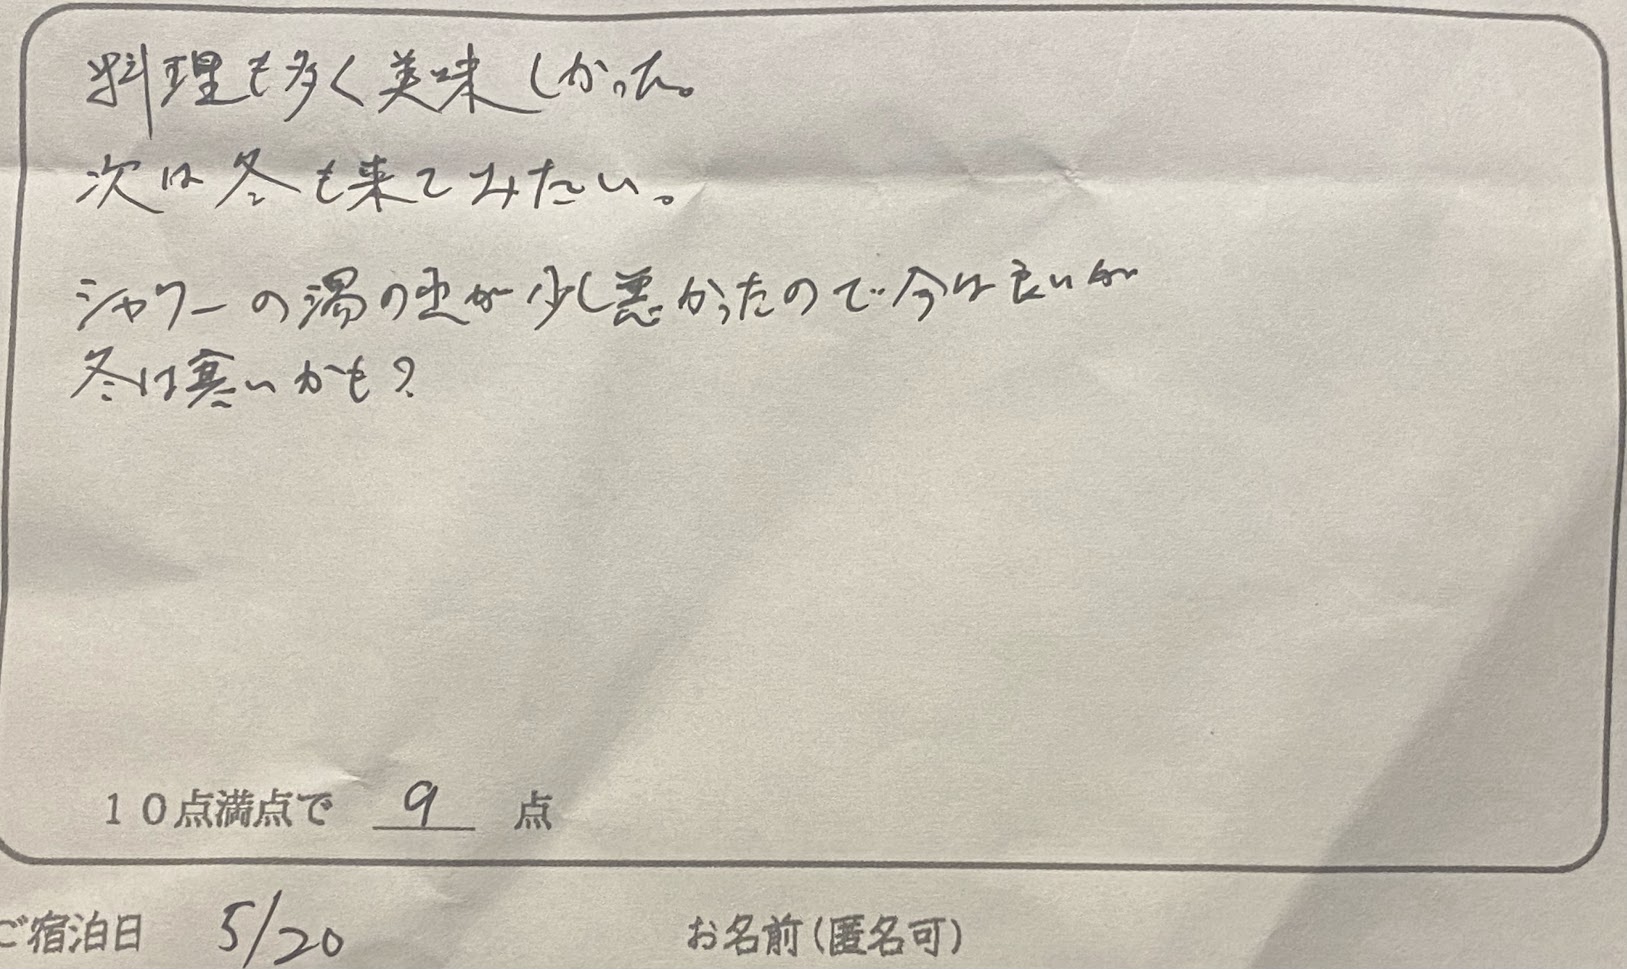 料理も多く美味しかった。
次は冬も来てみたい。
シャワーの湯の出が少し悪かったので今は良いが
冬は寒いかも?
10点満点で 9 点
ご宿泊日 5/20 お名前(匿名可)